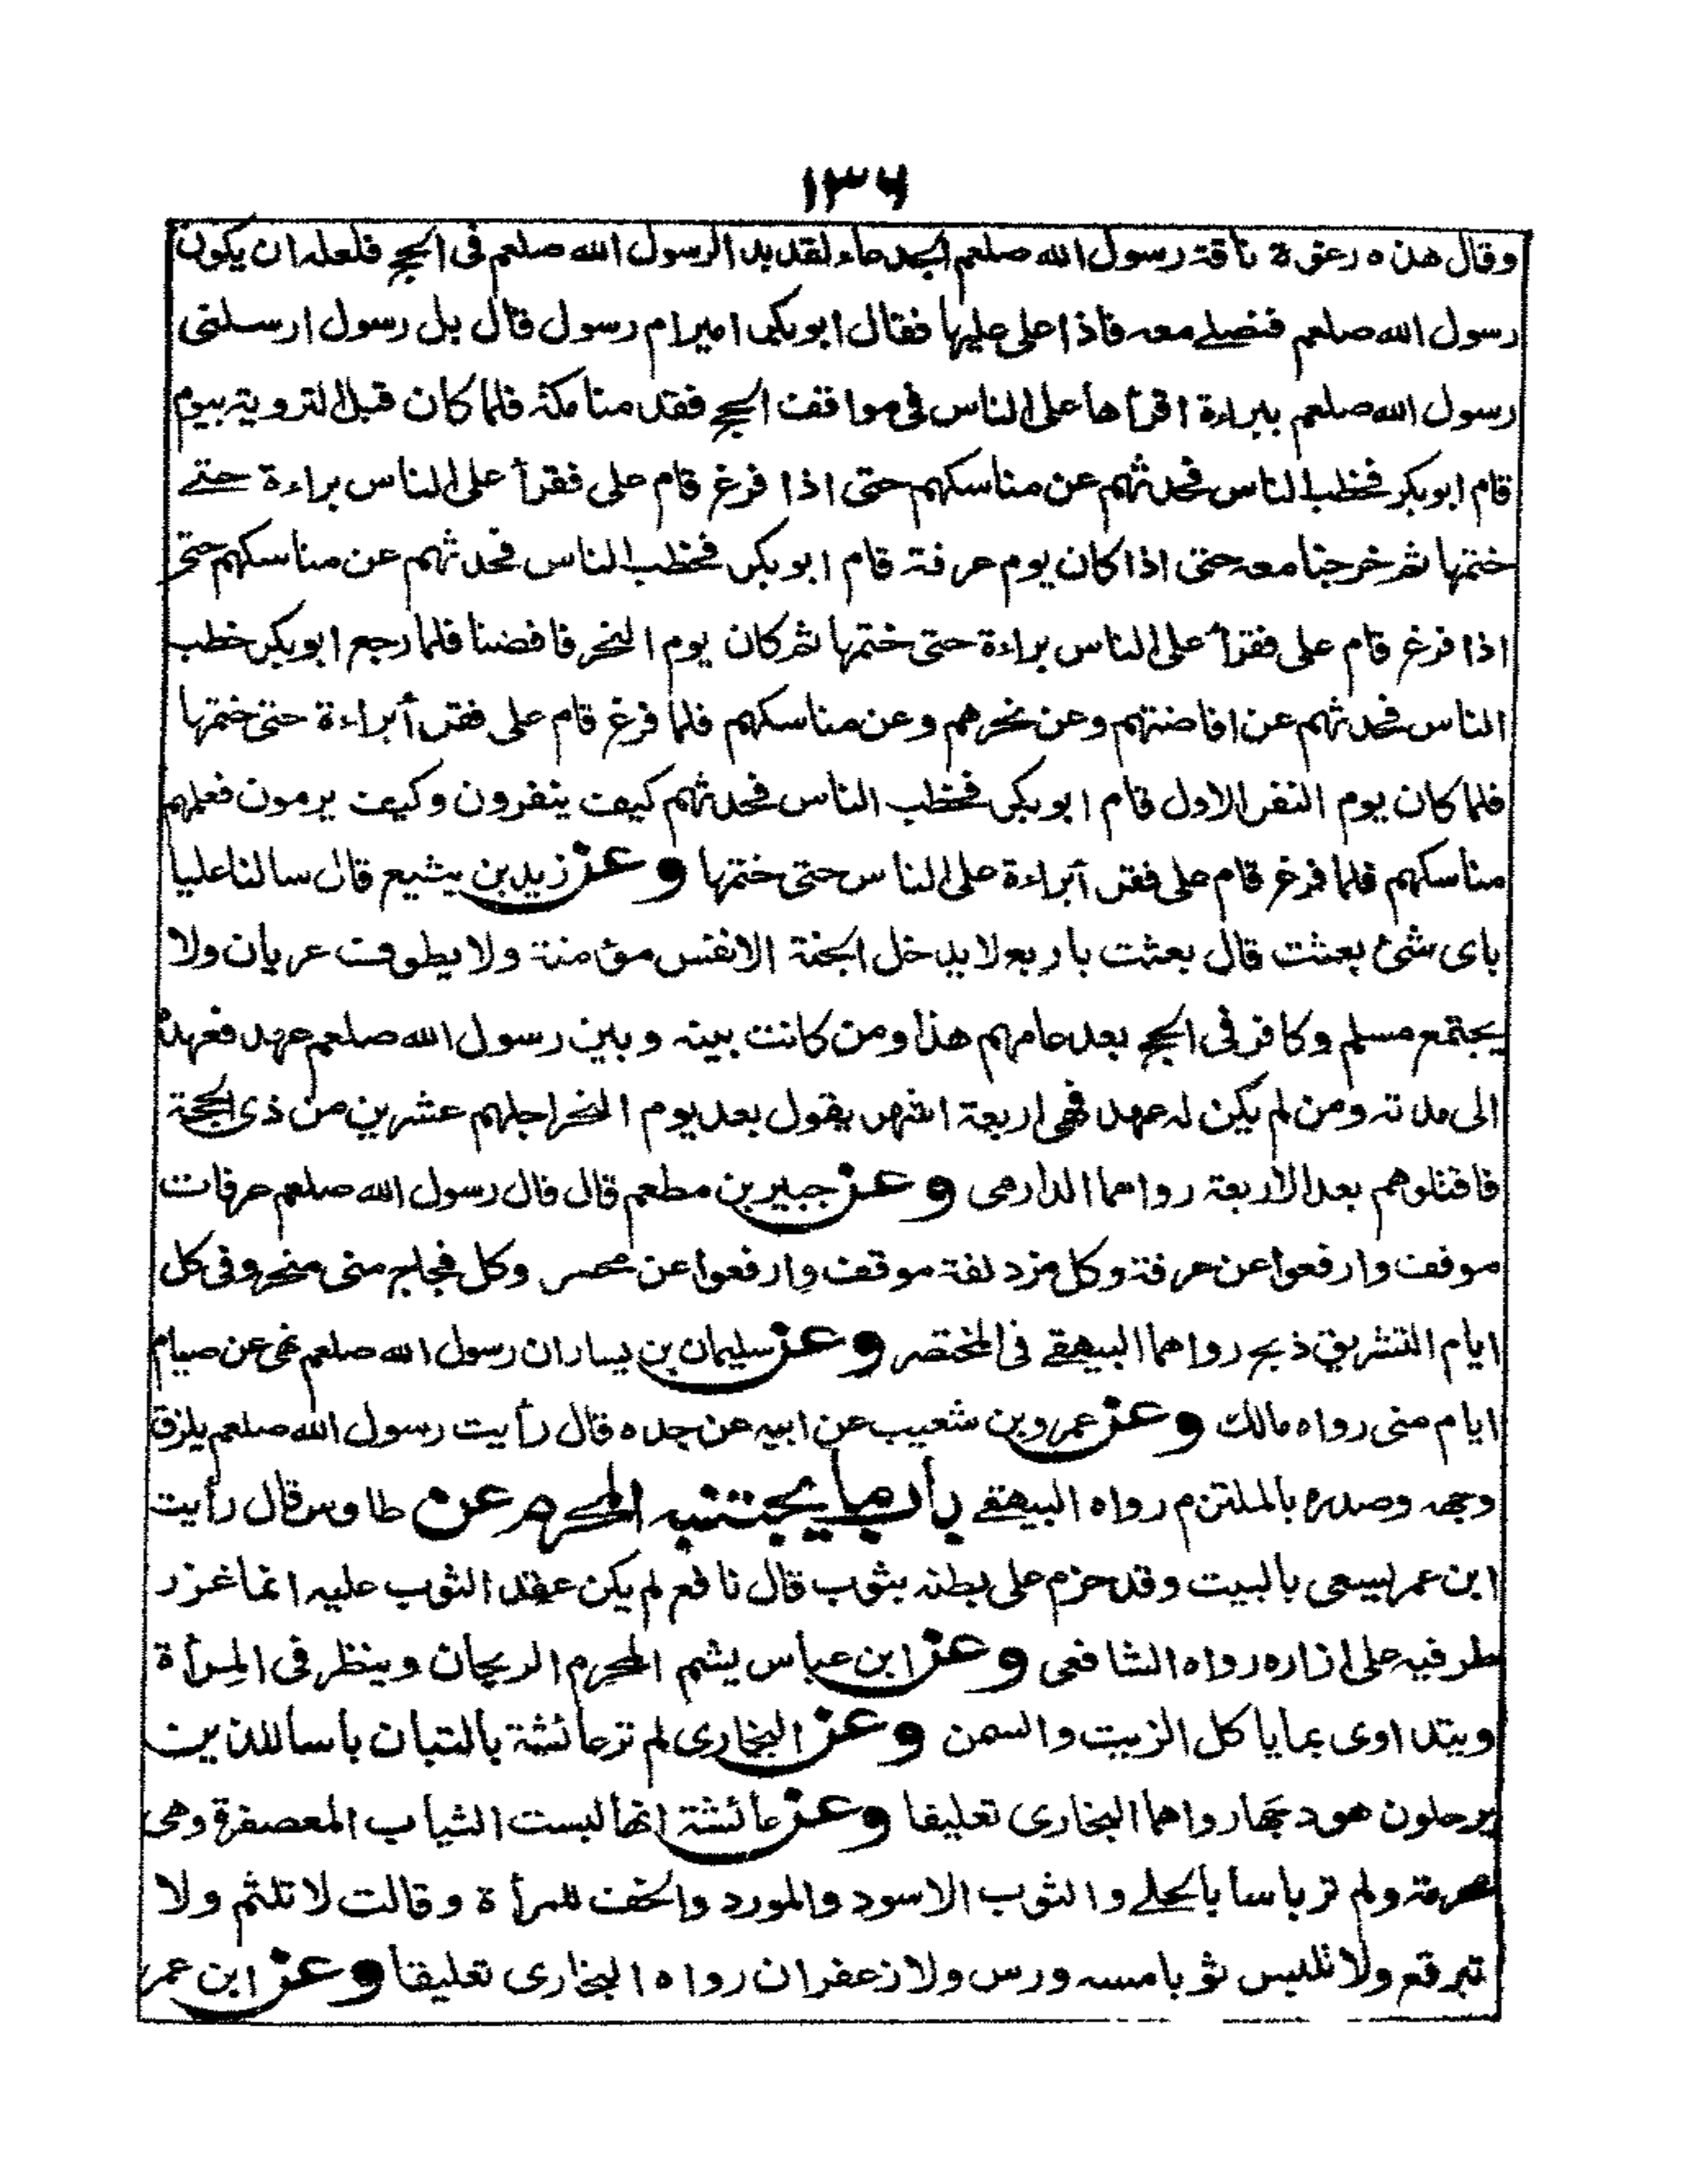 ١٣٦
وقال هذه رغوة ناقة رسول الله صلعم الجدعاء لقد بدا لرسول الله صلعم فى الحج فلعله ان يكون
رسول الله صلعم فنصلے معه فاذا على عليها فقال ابو بكر امير ام رسول قال بل رسول ارسلنى
رسول الله صلعم ببراءة اقرأها على الناس فى مواقف الحج فقدمنا مكة فلما كان قبل التروية بيوم
قام ابو بكر فخطب الناس فحدثهم عن مناسكهم حتى اذا فرغ قام على فقرأ على الناس براءة حتے
ختمها ثم خرجنا معه حتى اذا كان يوم عرفة قام ابو بكر فخطب الناس فحدثهم عن مناسكهم حتى
اذا فرغ قام على فقرأ على الناس براءة حتى ختمها ثم كان يوم النحر فافضنا فلما رجع ابو بكر خطب
الناس فحدثهم عن افاضتهم وعن نحرهم وعن مناسكهم فلما فرغ قام على فقرأ براءة حتى ختمها
فلما كان يوم النفر الاول قام ابو بكر فخطب الناس فحدثهم كيف ينفرون وكيف يرمون فعلمهم
مناسكهم فلما فرغ قام على فقرأ براءة على الناس حتى ختمها وعن زيد بن يثيع قال سالنا عليا
باى شئ بعثت قال بعثت باربع لا يدخل الجنة الا نفس مؤمنة ولا يطوف عريان ولا
يجتمع مسلم وكافر فى الحج بعد عامهم هذا ومن كانت بينه وبين رسول الله صلعم عهد فعهده
الى مدته ومن لم يكن له عهد فهى اربعة اشهر يقول بعد يوم النحر اجلهم عشرين من ذى الحجة
فاقتلوهم بعد الاربعة رواهما الدارمى وعن جبير بن مطعم قال قال رسول الله صلعم عرفات
موقف وارفعوا عن عرفة وكل مزدلفة موقف وارفعوا عن محسر وكل فجاج منى منحر وفى كل
ايام التشريق ذبح رواهما البيهقے فى المختصر وعن سليمان بن يسار ان رسول الله صلعم نهى عن صيام
ايام منى رواه مالك وعن عمرو بن شعيب عن ابيه عن جده قال رأيت رسول الله صلعم يلزق
وجهه وصدره بالملتزم رواه البيهقے باب ما يجتنبه المحرم عن طاوس قال رأيت
ابن عمر يسعى بالبيت وقد حزم على بطنه بثوب قال نافع لم يكن عقد الثوب عليه انما غرز
طرفيه على ازاره رواه الشافعى وعن ابن عباس يشم المحرم الريحان وينظر فى المرأة
ويتداوى بما ياكل الزيت والسمن وعن البخارى لم تر عائشة بالتبان باسا للذين
يرحلون هودجها رواهما البخارى تعليقا وعن عائشة انها لبست الثياب المعصفرة وهى
محرمة ولم تر باسا بالحلے والثوب الاسود والمورد والخف للمرأة وقالت لا تلثم ولا
تبرقع ولا تلبس ثوبا مسه ورس ولا زعفران رواه البخارى تعليقا وعن ابن عمر